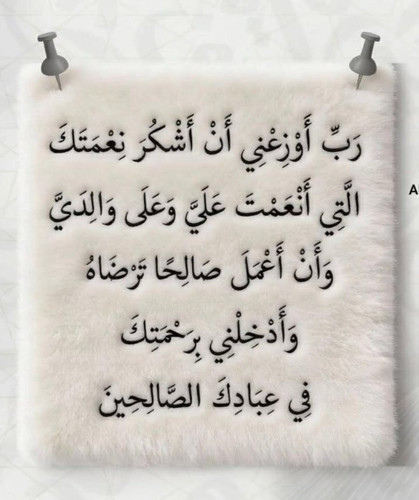 رَبِّ أَوْزِعْنِي أَنْ أَشْكُرَ نِعْمَتَكَ
الَّتِي أَنْعَمْتَ عَلَيَّ وَعَلَى وَالِدَيَّ
وَأَنْ أَعْمَلَ صَالِحًا تَرْضَاهُ
وَأَدْخِلْنِي بِرَحْمَتِكَ
فِي عِبَادِكَ الصَّالِحِينَ